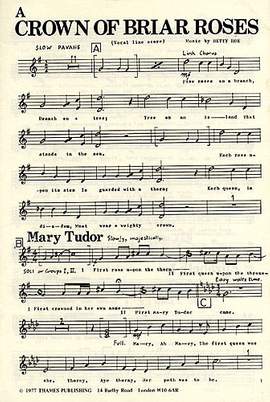 A
CROWN OF BRIAR ROSES
(Vocal line score) Music by BETTY ROE
SLOW PAVANE A Link Chorus
mf
Five roses on a branch,
Branch on a tree; Tree on an is-land That
stands in the sea, Each rose u-
-pon its stem Is guarded with a thorn; Each queen, in
wear a weighty crown. 1
B Mary Tudor Slowly, majestically
SOLI or Groups I, II. I First rose upon the thorn II First queen upon the throne
I First crowned in her own name II First Ma-ry Tudor came.
C
Full. Ma-ry, Ah Mary, The first queen was
she, Thorny, Aye thorny, Her path was to be. 1
© 1977 THAMES PUBLISHING 14 Barlby Road London W10 6AR